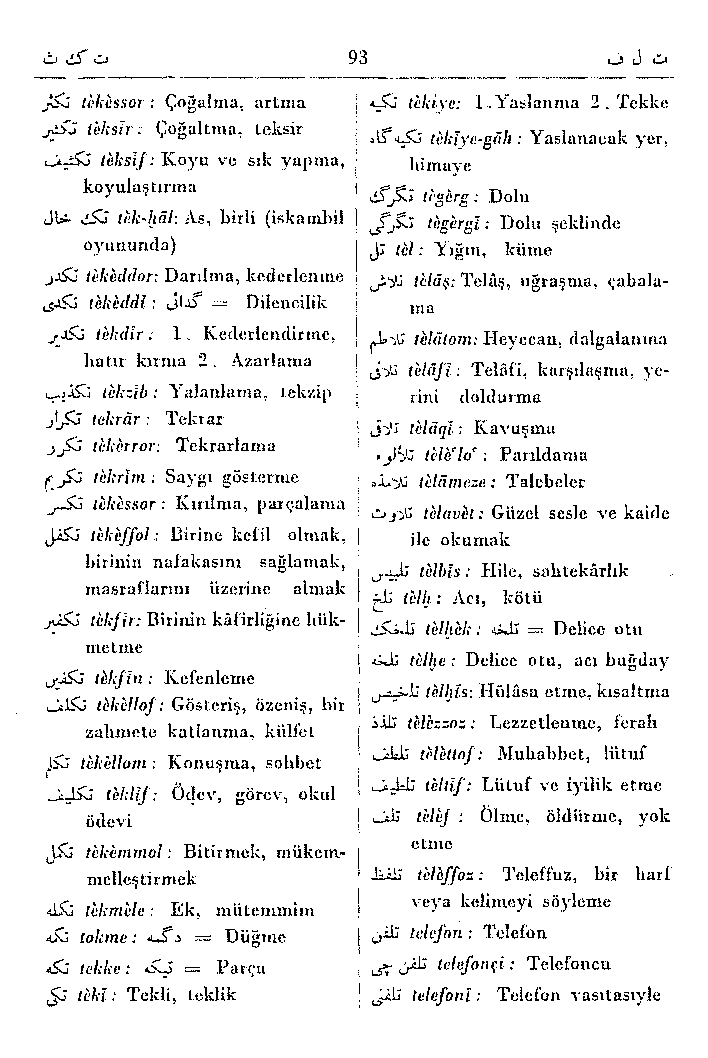 ت ك ث 93 ت ل ف
تكثر tèkèssor : Çoğalma, artma
تكثير tèksîr : Çoğaltma, teksir
تكثيف tèksîf : Koyu ve sık yapma,
koyulaştırma
تك خال tèk-ḫâl: As, birli (iskambil
oyununda)
تكدر tèkèddor: Darılma, kederlenme
تكدى tèkèddî : گدائى = Dilencilik
تكدير tèkdîr : 1. Kederlendirme,
hatır kırma 2. Azarlama
تكذيب tèkzîb : Yalanlama, tekzip
تكرار tekrâr : Tekrar
تكرر tèkèrror: Tekrarlama
تكريم tèkrîm : Saygı gösterme
تكسر tèkèssor : Kırılma, parçalama
تكفل tèkèffol : Birine kefil olmak,
birinin nafakasını sağlamak,
masraflarını üzerine almak
تكفير tèkfîr: Birinin kâfirliğine hük-
metme
تكفين tèkfîn : Kefenleme
تكلف tèkèllof : Gösteriş, özeniş, bir
zahmete katlanma, külfet
تكلم tèkèllom : Konuşma, sohbet
تكليف tèklîf : Ödev, görev, okul
ödevi
تكمل tèkèmmol : Bitirmek, mükem-
melleştirmek
تكمله tèkmèle : Ek, mütemmim
تكمه tokme : دگمه = Düğme
تكه tekke : تيكه = Parça
تكى tèkî : Tekli, teklik
تكيه tèkiye: 1. Yaslanma 2. Tekke
تكيه گاه tèkîye-gâh : Yaslanacak yer,
himaye
تگرگ tègèrg : Dolu
تگرگى tègèrgî : Dolu şeklinde
تل tèl : Yığın, küme
تلاش tèlâş: Telâş, uğraşma, çabala-
ma
تلاطم tèlâtom: Heyecan, dalgalanma
تلافى tèlâfî : Telâfi, karşılaşma, ye-
rini doldurma
تلاقى tèlâqî : Kavuşma
تلألوء tèlè'lo' : Parıldama
تلامذه tèlâmeze : Talebeler
تلاوت tèlavèt : Güzel sesle ve kaide
ile okumak
تلبيس tèlbîs : Hile, sahtekârlık
تلخ tèlḫ : Acı, kötü
تلخك tèlḫèk : تلخه = Delice otu
تلخه tèlḫe : Delice otu, acı buğday
تلخيص tèlḫîs: Hülâsa etme, kısaltma
تلذذ tèlèzzoz : Lezzetlenme, ferah
تلطف tèlèttof : Muhabbet, lütuf
تلطيف tèltîf : Lütuf ve iyilik etme
تلف tèlèf : Ölme, öldürme, yok
etme
تلفظ tèlèffoz : Teleffuz, bir harf
veya kelimeyi söyleme
تلفن telefon : Telefon
تلفن چى telefonçi : Telefoncu
تلفنى telefonî : Telefon vasıtasıyle